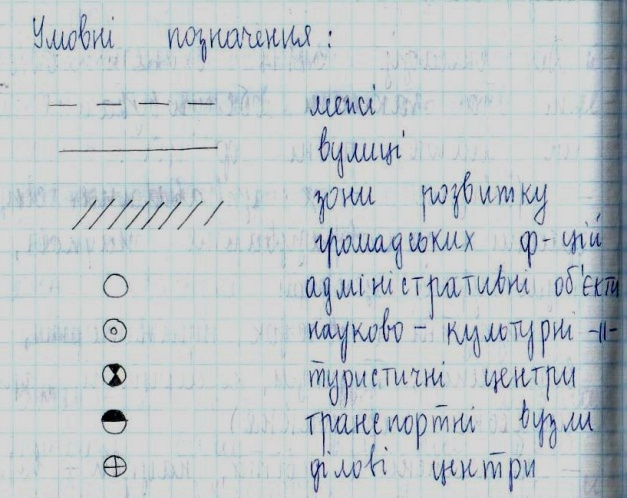 Умовні позначення:
межі
вулиці
зони розвитку
громадських ф-цій
адміністративні об'єкти
науково - культурні -||-
туристичні центри
транспортні вузли
ділові центри